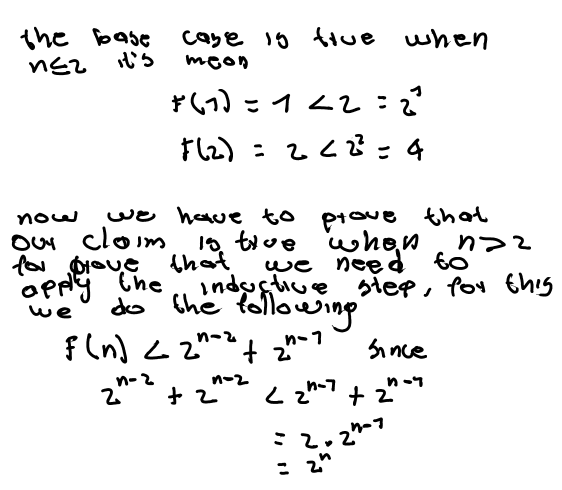 the base case is true when
n≤2 it's mean
F(1) = 1 < 2 = 2^1
F(2) = 2 < 2^2 = 4
now we have to prove that
our claim is true when n>2
for prove that we need to
apply the inductive step, for this
we do the following
F(n) < 2^{n-2} + 2^{n-1} since
2^{n-2} + 2^{n-2} < 2^{n-1} + 2^{n-1}
= 2 · 2^{n-1}
= 2^n